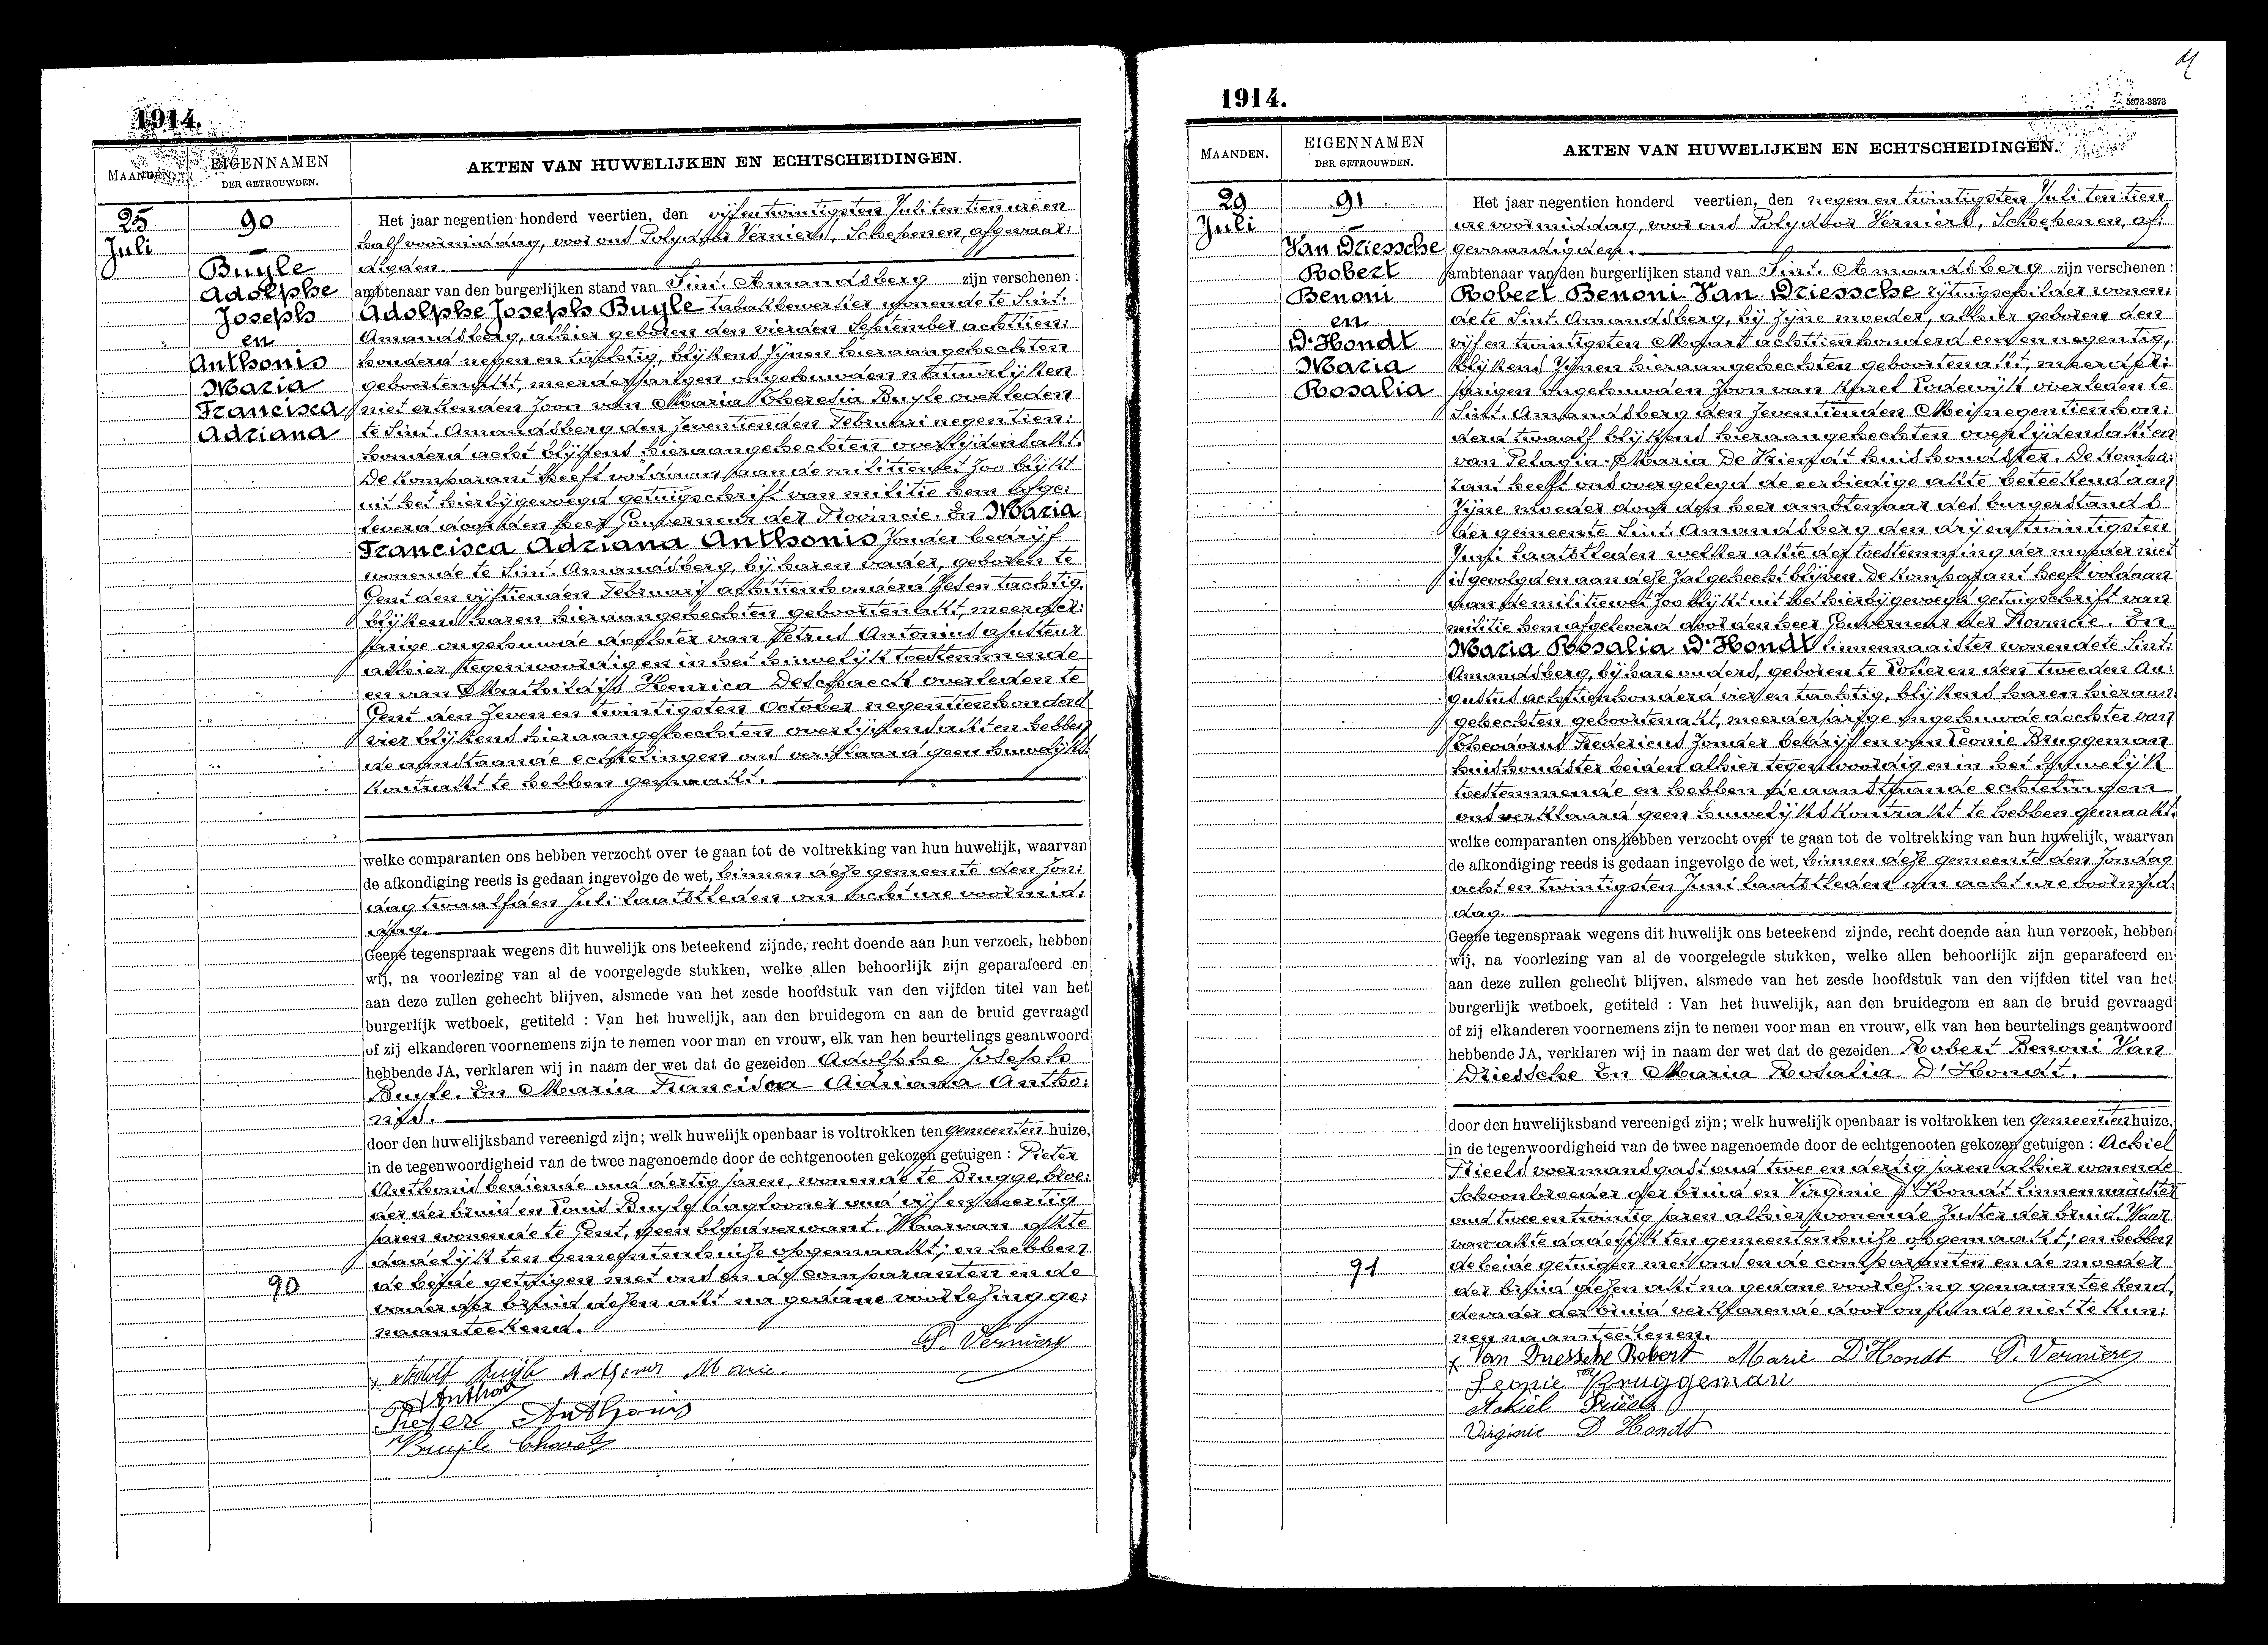 1914.
MAANDEN.
EIGENNAMEN
DER GETROUWDEN.
AKTEN VAN HUWELIJKEN EN ECHTSCHEIDINGEN.
25
Juli
90
Buyle
Adolphe
Joseph
en
Anthonis
Maria
Francisca
Adriana
Het jaar negentien honderd veertien, den vijfentwintigsten Juli ten tien ure en
half voormiddag, voor ons Polydoor Verniers, Schepenen, afgevaar:
digden.
ambtenaar van den burgerlijken stand van Sint. Amandsberg zijn verschenen :
Adolphe Joseph Buyle tabakbewerker wonende te Sint.
Amandsberg, alhier geboren den vierden September achttien:
honderd negen en tachtig, blijkens zijnen hieraangehechten
geboortenakt, meerderjarigen ongehuwden natuurlijken
niet erkenden zoon van Maria Theresia Buyle overleden
te Sint. Amandsberg den zeventienden Februari negentien:
honderd acht blijkens hieraangehechten overlijdensakt.
De komparant heeft voldaan aan de militiewet zoo blijkt
uit het hierbijgevoegd getuigschrift van militie hem afge:
leverd door den heer Gouverneur der Provincie. En Maria
Francisca Adriana Anthonis zonder bedrijf
wonende te Sint. Amandsberg, bij haren vader, geboren te
Gent den vijftienden Februari achttienhonderd zeven tachtig,
blijkens haren hieraangehechten geboortenakt, meerder:
jarige ongehuwde dochter van Petrus Antonius ajusteur
alhier tegenwoordig en in het huwelijk toestemmende
en van Mathildis Henrica overleden te
Gent den zeven en twintigsten October negentienhonderd
vier blijkens hieraangehechten overlijdensakt en hebben
de aanstaande echtelingen ons verklaard geen huwelijks:
kontrakt te hebben gemaakt.
welke comparanten ons hebben verzocht over te gaan tot de voltrekking van hun huwelijk, waarvan
de afkondiging reeds is gedaan ingevolge de wet, binnen deze gemeente den zon:
dag twaalfden Juli laatstleden om acht ure voormid:
dag.
Geene tegenspraak wegens dit huwelijk ons beteekend zijnde, recht doende aan hun verzoek, hebben
wij, na voorlezing van al de voorgelegde stukken, welke allen behoorlijk zijn geparafeerd en
aan deze zullen gehecht blijven, alsmede van het zesde hoofdstuk van den vijfden titel van het
burgerlijk wetboek, getiteld : Van het huwelijk, aan den bruidegom en aan de bruid gevraagd
of zij elkanderen voornemens zijn te nemen voor man en vrouw, elk van hen beurtelings geantwoord
hebbende JA, verklaren wij in naam der wet dat de gezeiden Adolphe Joseph
Buyle. En Maria Francisca Adriana Antho:
nis.
door den huwelijksband vereenigd zijn; welk huwelijk openbaar is voltrokken ten gemeenten huize,
in de tegenwoordigheid van de twee nagenoemde door de echtgenooten gekozen getuigen : Pieter
Anthonis bediende oud dertig jaren, wonende te Brugge, broe:
der der bruid en Louis Buyle daglooner oud vijf en veertig
jaren wonende te Gent, geen bloedverwant. Waarvan akte
dadelijk ten gemeentenhuize opgemaakt; en hebben
de beide getuigen met ons en de comparanten en de
vader der bruid dezen akt na gedane voorlezing ge:
naamteekend.
90
P. Verniers
Adolf Buyle Anthonis Marie
Anthonis
Pieter Anthonis
Buyle
1914.
5973-3373
MAANDEN.
EIGENNAMEN
DER GETROUWDEN.
AKTEN VAN HUWELIJKEN EN ECHTSCHEIDINGEN.
29
Juli
91
Van Driessche
Robert
Benoni
en
D'Hondt
Maria
Rosalia
Het jaar negentien honderd veertien, den negen en twintigsten Juli ten tien
ure voormiddag, voor ons Polydoor Verniers, Schepenen, af:
gevaardigden.
ambtenaar van den burgerlijken stand van Sint. Amandsberg zijn verschenen :
Robert Benoni Van Driessche rijtuigschilder wonen:
de te Sint. Amandsberg, bij zijne moeder, alhier geboren den
vijf en twintigsten Maart achttienhonderd een en negentig,
blijkens zijnen hieraangehechten geboortenakt, meerder:
jarigen ongehuwden zoon van Karel Lodewijk overleden te
Sint. Amandsberg den zeventienden Mei negentienhon:
derd twaalf blijkens hieraangehechten overlijdensakt en
van Pelagia Maria De Vriendt huishoudster. De kompa:
rant heeft ons overgelegd de eerbiedige akte beteekend aan
zijne moeder door den heer ambtenaar des burgerstands
der gemeente Sint. Amandsberg den drij en twintigsten
Juni laatstleden welker akte der toestemming der moeder niet
is gevolgd en aan deze zal gehecht blijven. De komparant heeft voldaan
aan de militiewet zoo blijkt uit het hierbijgevoegd getuigschrift van
militie hem afgeleverd door den heer Gouverneur der Provincie. En
Maria Rosalia D'Hondt linnennaaister wonende te Sint:
Amandsberg, bij hare ouders, geboren te Looteren den tweeden Au:
gustus achttienhonderd vier en tachtig, blijkens haren hieraan:
gehechten geboortenakt, meerderjarige ongehuwde dochter van
Theodorus Fredericus zonder bedrijf en van Leonie Bruggeman
huishoudster beiden alhier tegenwoordig en in het huwelijk
toestemmende en hebben de aanstaande echtelingen
ons verklaard geen huwelijkskontrakt te hebben gemaakt.
welke comparanten ons hebben verzocht over te gaan tot de voltrekking van hun huwelijk, waarvan
de afkondiging reeds is gedaan ingevolge de wet, binnen deze gemeente den zondag
acht en twintigsten Juni laatstleden om acht ure voormid:
dag.
Geene tegenspraak wegens dit huwelijk ons beteekend zijnde, recht doende aan hun verzoek, hebben
wij, na voorlezing van al de voorgelegde stukken, welke allen behoorlijk zijn geparafeerd en
aan deze zullen gehecht blijven, alsmede van het zesde hoofdstuk van den vijfden titel van het
burgerlijk wetboek, getiteld : Van het huwelijk, aan den bruidegom en aan de bruid gevraagd
of zij elkanderen voornemens zijn te nemen voor man en vrouw, elk van hen beurtelings geantwoord
hebbende JA, verklaren wij in naam der wet dat de gezeiden Robert Benoni Van
Driessche En Maria Rosalia D'Hondt.
door den huwelijksband vereenigd zijn; welk huwelijk openbaar is voltrokken ten gemeenten huize,
in de tegenwoordigheid van de twee nagenoemde door de echtgenooten gekozen getuigen : Achiel
Prieels voermansgast oud twee en dertig jaren alhier wonende
schoonbroeder der bruid en Virginie D'Hondt linnennaaister
oud twee en twintig jaren alhier wonende zuster der bruid. Waar
van akte dadelijk ten gemeentenhuize opgemaakt; en hebben
de beide getuigen met ons en de comparanten en de moeder
der bruid dezen akt na gedane voorlezing genaamteekend,
de vader der bruid verklarende door onkunde niet te kun:
nen naamteekenen.
91
Van Driessche Robert Marie D'Hondt P. Verniers
Leonie Bruggeman
Achiel Prieels
Virginie D Hondt